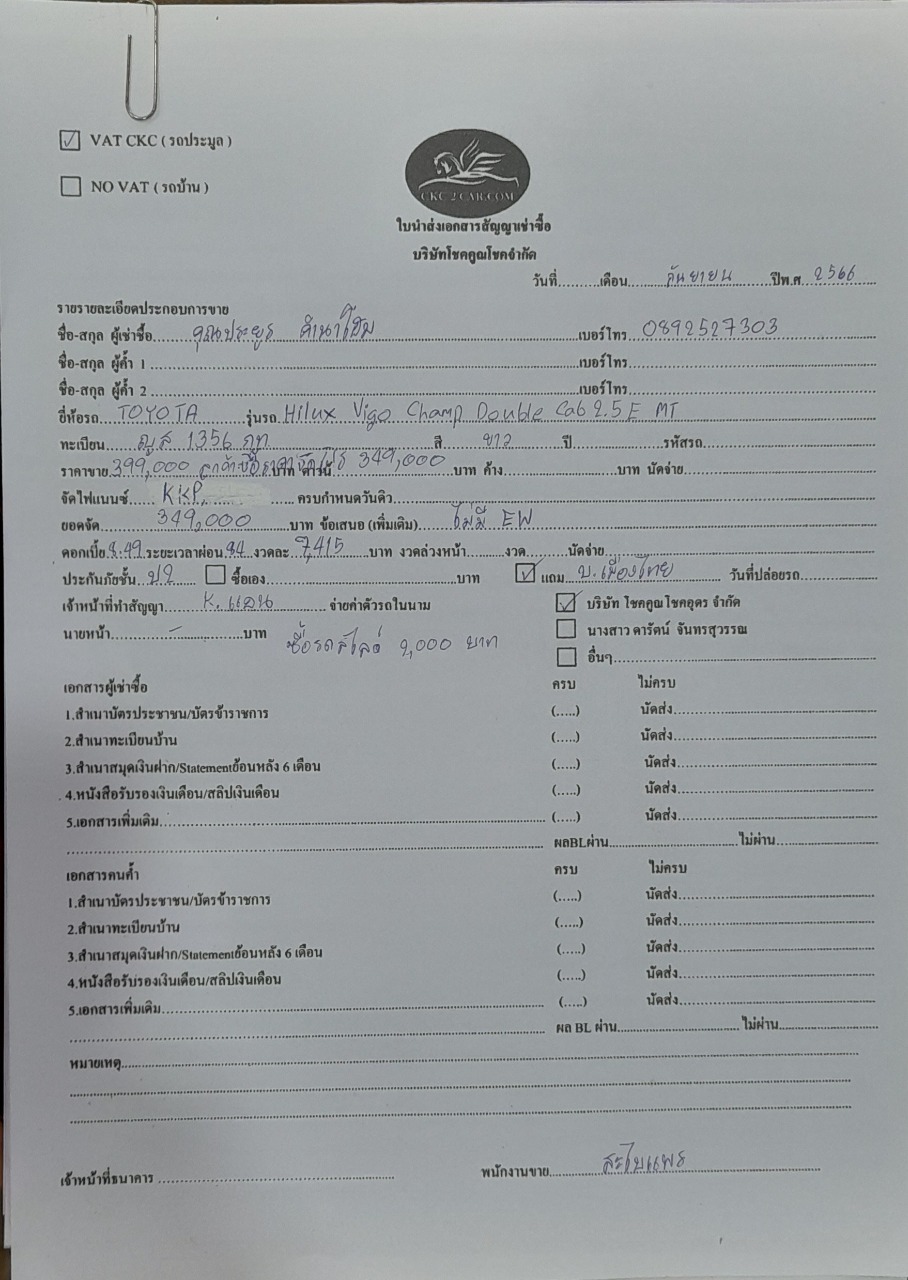 ☑ VAT CKC ( รถประมูล )
☐ NO VAT ( รถบ้าน )
CKC 2 CAR.COM
ใบนำส่งเอกสารสัญญาเช่าซื้อ
บริษัทโชคคูณโชคจำกัด
วันที่..........เดือน.......กันยายน.......ปีพ.ศ. 2566
รายรายละเอียดประกอบการขาย
ชื่อ-สกุล ผู้เช่าซื้อ.......คุณประยูร.......เบอร์โทร. 0892527303
ชื่อ-สกุล ผู้ค้ำ 1 ..............เบอร์โทร..............
ชื่อ-สกุล ผู้ค้ำ 2 ..............เบอร์โทร..............
ยี่ห้อรถ...TOYOTA.......รุ่นรถ. Hilux Vigo Champ Double Cab 2.5 E MT
ทะเบียน.......1356 กท.......สี.......ขาว.......ปี..............รหัสรถ..............
ราคาขาย. 399,000 349,000 บาท ค้าง..............บาท นัดจ่าย..............
จัดไฟแนนซ์...... KKP. ......ครบกำหนดวันคิว..............
ยอดจัด.......349,000.......บาท ข้อเสนอ (เพิ่มเติม).......ไม่มี EW
ดอกเบี้ย 8.49 ระยะเวลาผ่อน 84 งวดละ 7,415 บาท งวดล่วงหน้า..........งวด..........นัดจ่าย..............
ประกันภัยชั้น. ป2 ☐ ซื้อเอง..............บาท ☑ แถม. บ.เมืองไทย วันที่ปล่อยรถ..............
เจ้าหน้าที่ทำสัญญา.......K. แอน.......จ่ายค่าตัวรถในนาม ☑ บริษัท โชคคูณโชคอุดร จำกัด
นายหน้า.......-.......บาท ☐ นางสาว ดารัตน์ จันทรสุวรรณ
ซื้อรถสไลด์ 2,000 บาท
☐ อื่นๆ..............
เอกสารผู้เช่าซื้อ ครบ ไม่ครบ
1.สำเนาบัตรประชาชน/บัตรข้าราชการ (.....) นัดส่ง..............
2.สำเนาทะเบียนบ้าน (.....) นัดส่ง..............
3.สำเนาสมุดเงินฝาก/Statementย้อนหลัง 6 เดือน (.....) นัดส่ง..............
4.หนังสือรับรองเงินเดือน/สลิปเงินเดือน (.....) นัดส่ง..............
5.เอกสารเพิ่มเติม.............. (.....) นัดส่ง..............
.............. ผลBLผ่าน..............ไม่ผ่าน..............
เอกสารคนค้ำ ครบ ไม่ครบ
1.สำเนาบัตรประชาชน/บัตรข้าราชการ (.....) นัดส่ง..............
2.สำเนาทะเบียนบ้าน (.....) นัดส่ง..............
3.สำเนาสมุดเงินฝาก/Statementย้อนหลัง 6 เดือน (.....) นัดส่ง..............
4.หนังสือรับรองเงินเดือน/สลิปเงินเดือน (.....) นัดส่ง..............
5.เอกสารเพิ่มเติม.............. (.....) นัดส่ง..............
.............. ผล BL ผ่าน..............ไม่ผ่าน..............
หมายเหตุ..............
เจ้าหน้าที่ธนาคาร .............. พนักงานขาย.......สะไบแพร